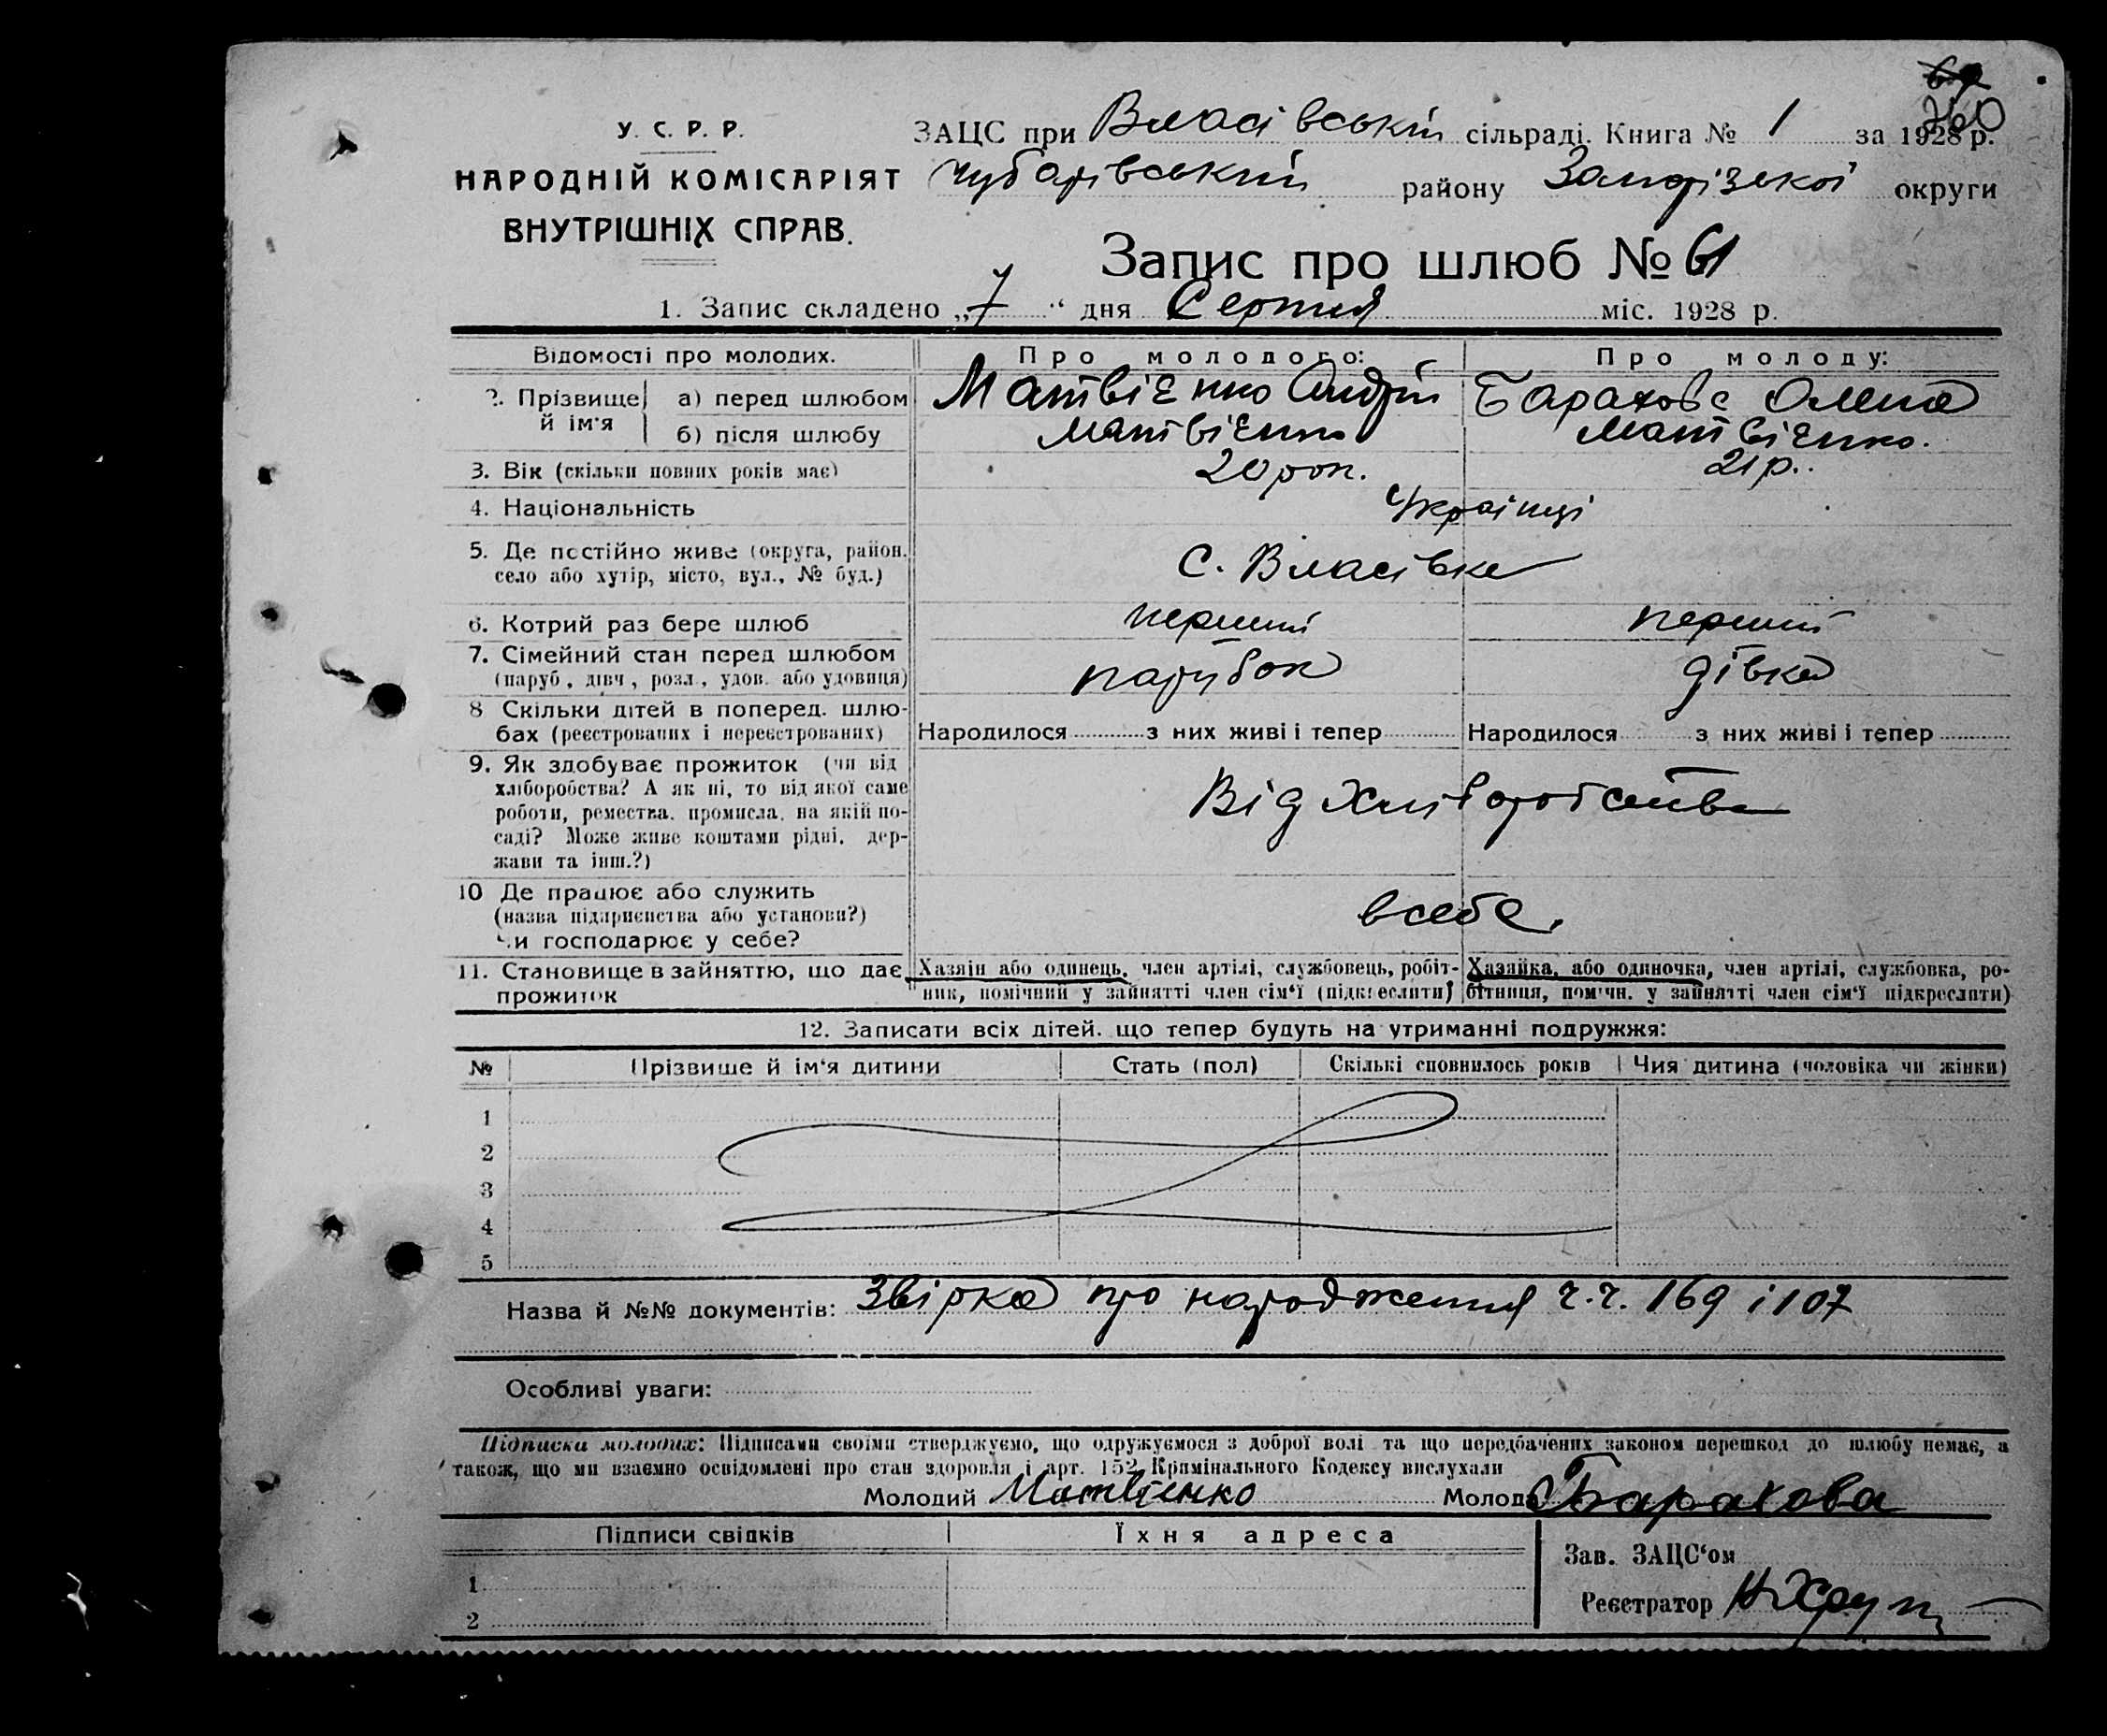 260
У. С. Р. Р.
НАРОДНІЙ КОМІСАРІЯТ
ВНУТРІШНІХ СПРАВ.
ЗАЦС при Власівській сільраді. Книга № 1 за 1928 р.
Чубарівський району Запорізької округи
Запис про шлюб № 61
1. Запис складено „7“ дня Серпня міс. 1928 р.
Відомості про молодих. Про молодого: Про молоду:
2. Прізвище й ім'я а) перед шлюбом Матвієнко Андрій Барахова Олена
б) після шлюбу Матвієнко Матвієнко.
3. Вік (скільки повних років має) 20 рок. 21 р.
4. Національність Українці
5. Де постійно живе (округа, район.
село або хутір, місто, вул., № буд.) С. Власівка
6. Котрий раз бере шлюб перший перший
7. Сімейний стан перед шлюбом
(паруб, дівч, розл., удов. або удовиця) парубок дівка
8 Скільки дітей в поперед. шлю-
бах (реєстрованих і нереєстрованих) Народилося з них живі і тепер Народилося з них живі і тепер
9. Як здобуває прожиток (чи від
хліборобства? А як ні, то від якої саме
роботи, ремества. промисла, на якій по-
саді? Може живе коштами рідні, дер-
жави та інш.?) Від Хліборобства
10 Де працює або служить
(назва підприємства або установи?)
Чи господарює у себе? всебе.
11. Становище в зайняттю, що дає
прожиток
Хазяїн або одинець, член артілі, службовець, робіт-
ник, помічний у зайнятті член сім'ї (підкреслити)
Хазяйка, або одиночка, член артілі, службовка, ро-
бітниця, помічн. у зайнятті член сім'ї підкреслити)
12. Записати всіх дітей. що тепер будуть на утриманні подружжя:
№ Прізвище й ім'я дитини Стать (пол) Скількі сповнилось років Чия дитина (чоловіка чи жінки)
1
2
3
4
5
Назва й №№ документів: Звірка про народження ч.ч. 169 і 107
Особливі уваги:
Підписка молодих: Підписами своїми стверджуємо, що одружуємося з доброї волі та що передбачених законом перешкод до шлюбу немає, а
також, що ми взаємно освідомлені про стан здоровля і арт. 152 Крімінального Кодексу вислухали
Молодий Матвієнко Молода Барахова
Підписи свідків Їхня адреса
1
2
Зав. ЗАЦС'ом
Реєстратор